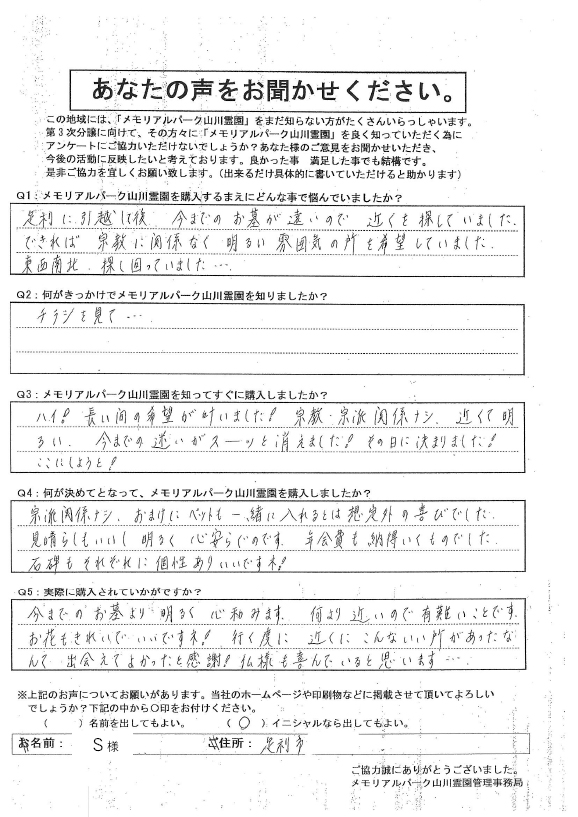 あなたの声をお聞かせください。
この地域には、「メモリアルパーク山川霊園」をまだ知らない方がたくさんいらっしゃいます。
第3次分譲に向けて、その方々に「メモリアルパーク山川霊園」を良く知っていただく為に
アンケートにご協力いただけないでしょうか？あなた様のご意見をお聞かせいただき、
今後の活動に反映したいと考えております。良かった事　満足した事でも結構です。
是非ご協力を宜しくお願い致します。（出来るだけ具体的に書いていただけると助かります）
Q1：メモリアルパーク山川霊園を購入するまえにどんな事で悩んでいましたか？
足利に引越して後　今までのお墓が遠いので　近くを探していました.
できれば　宗教に関係なく　明るい雰囲気の所を希望していました.
東西南北、探し回っていました….
Q2：何がきっかけでメモリアルパーク山川霊園を知りましたか？
チラシを見て….
Q3：メモリアルパーク山川霊園を知ってすぐに購入しましたか？
ハイ！長い間の希望が叶いました！　宗教・宗派関係ナシ、近くて明
るい、今までの迷いがスーッと消えました！その日に決まりました！
ここにしようと！
Q4：何が決めてとなって、メモリアルパーク山川霊園を購入しましたか？
宗派関係ナシ、おまけにペットも一緒に入れるとは想定外の喜びでした.
見晴らしもいいし　明るく　心安らぐのです.　年会費も納得いくものでした.
石碑もそれぞれに個性ありいいですネ！
Q5：実際に購入されていかがですか？
今までのお墓より　明るく　心和みます.　何より近いので有難いことです.
お花もきれいでいいですネ！　行く度に　近くにこんないい所があったな
んて　出会えてよかったと感謝！仏様も喜んでいると思います….
※上記のお声についてお願いがあります。当社のホームページや印刷物などに掲載させて頂いてよろしい
でしょうか？下記の中から○印をお付けください。
（　　）名前を出してもよい。　（ ○ ）イニシャルなら出してもよい。
お名前：　S様　ご住所：足利市
ご協力誠にありがとうございました。
メモリアルパーク山川霊園管理事務局